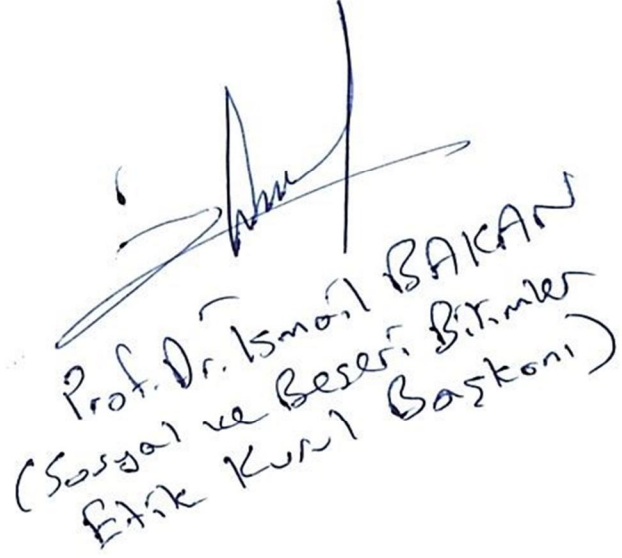 Prof. Dr. İsmail BAKAN
(Sosyal ve Beşeri Bilimler
Etik Kurul Başkanı)